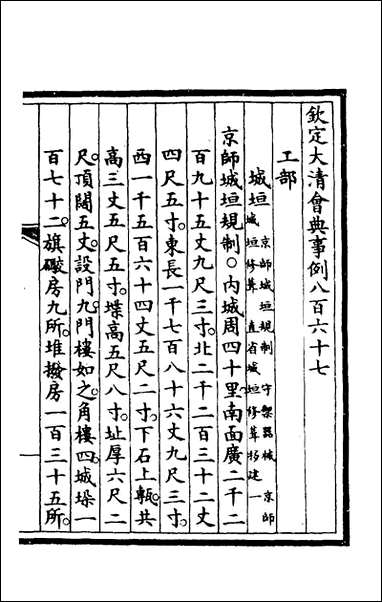 欽定大清會典事例八百六十七
工部
城垣 京師城垣規制 守禦器械 京師
城垣修葺 直省城垣修葺移建一
京師城垣規制○內城周四十里南面廣二千二
百九十五丈九尺三寸北二千二百三十二丈
四尺五寸東長一千七百八十六丈九尺三寸
西一千五百六十四丈五尺二寸下石上甎共
高三丈五尺五寸堞高五尺八寸址厚六尺二
尺頂闊五丈設門九門樓如之角樓四城垛一
百七十二旗礮房九所堆撥房一百三十五所